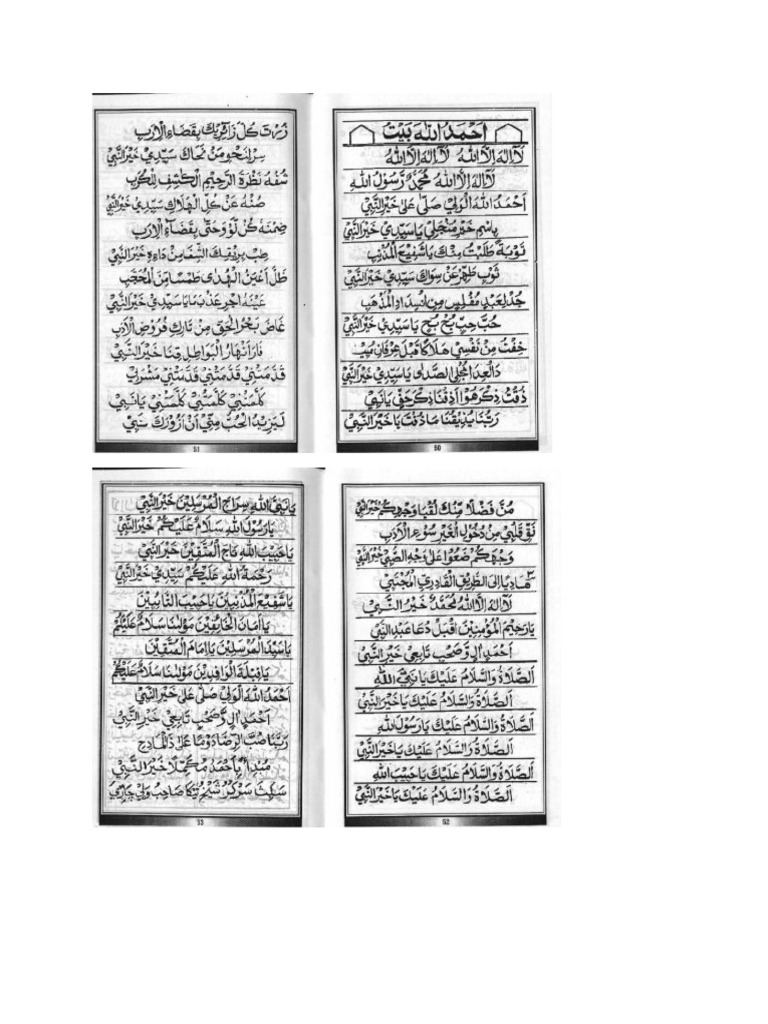 اَحْمَدُ اللهَ بَيْتْ
لَآ اِلٰهَ اِلَّا اللهُ لَآ اِلٰهَ اِلَّا اللهُ
لَآ اِلٰهَ اِلَّا اللهُ مُحَمَّدٌ رَّسُوْلُ اللهِ
اَحْمَدُ اللهَ الْوَلِيْ صَلِّى عَلٰى خَيْرِ النَّبِيْ
بِاسْمِ خَيْرٍ مَنْجَلِيْ يَا سَيِّدِيْ خَيْرَ النَّبِيْ
تَوْبَةً طَلَبْتُ مِنْكَ يَا شَفِيْعَ الْمُذْنِبِ
ثَوْبِ طَهِّرْ عَنْ سِوَاكَ سَيِّدِيْ خَيْرَ النَّبِيْ
جُدْ لِعَبْدٍ مُفْلِسٍ مِنْ الْمَذْهَبِ
حُبَّ حِبٍّ بُحْ بُحْ يَا سَيِّدِيْ خَيْرَ النَّبِيْ
خِفْتُ مِنْ نَفْسِيْ هَلَاكًا قَبْلَ عِرْفَانٍ
يَا سَيِّدِيْ خَيْرَ النَّبِيْ
ذُقْتُ ذِكْرَ هُوْ اَذِقْنَا ذِكْرَ حَقٍّ يَا نَبِيْ
رَبَّنَا يُذِيْقُنَا مَا ذُقْتَ يَا خَيْرَ النَّبِيْ
50
زُرْتَ كُلَّ زَائِرِيْكَ بِقَضَاءِ الْاَرَبِ
سِرْ لِنَحْوِ مَنْ نَحَاكَ سَيِّدِيْ خَيْرَ النَّبِيْ
شُفْهُ نَظْرَةَ الرَّحِيْمِ الْكَاشِفِ لِلْكُرَبِ
صُنْهُ عَنْ كُلِّ الْهَلَاكِ سَيِّدِيْ خَيْرَ النَّبِيْ
ضِمْنَهُ كُلٌّ وَحَتّٰى بِقَضَاءِ الْاَرَبِ
طِبْ بِرِيْقِكَ الشِّفَا مِنْ دَاءِهِ خَيْرَ النَّبِيْ
ظَلَّ اَعْيُنُ الْهُدٰى طَمْسًا مِنَ الْمُحَجَّبِ
عَيْنَهُ اَجْرِ عَذْبَ مَا يَا سَيِّدِيْ خَيْرَ النَّبِيْ
غَاضَ بَحْرُ الْحَقِّ مِنْ تَارِكِ فُرُوْضِ الْاَدَبِ
فَارَ اَنْهَارُ الْبَوَاطِلِ قِنَا خَيْرَ النَّبِيْ
قَدَّمَتْنِيْ قَدَّمَتْنِيْ قَدَّمَتْنِيْ مَشْرَبِيْ
كَلَّمَتْنِيْ كَلَّمَتْنِيْ كَلَّمَتْنِيْ يَا نَبِيْ
لَيَزِيْدُ الْحُبُّ مِنِّيْ اَنْ اَزُوْرَكَ
51
مُنَّ فَضْلًا مِنْكَ وَجْهِكُمْ خَيْرَ النَّبِيْ
نَقِّ قَلْبِيْ مِنْ دُخُوْلِ الْغَيْرِ سُوْءِ الْاَدَبِ
وَجْهَكُمْ ضَعُوْا عَلٰى وَجْهِ الصَّبِيْ خَيْرَ النَّبِيْ
هَادِيًا اِلَى الطَّرِيْقِ الْقَادِرِيِّ الْمُجْتَبِيْ
لَا اِلٰهَ اِلَّا اللهُ مُحَمَّدٌ خَيْرُ النَّبِيْ
يَا رَحِيْمَ الْمُؤْمِنِيْنَ اقْبَلْ دُعَا عَبْدِ النَّبِيْ
اَحْمَدٍ اٰلٍ وَّصَحْبٍ تَابِعِيْ خَيْرِ النَّبِيْ
اَلصَّلَاةُ وَالسَّلَامُ عَلَيْكَ يَا نَبِيَّ اللهِ
اَلصَّلَاةُ وَالسَّلَامُ عَلَيْكَ يَا خَيْرَ النَّبِيْ
اَلصَّلَاةُ وَالسَّلَامُ عَلَيْكَ يَا رَسُوْلَ اللهِ
اَلصَّلَاةُ وَالسَّلَامُ عَلَيْكَ يَا خَيْرَ النَّبِيْ
اَلصَّلَاةُ وَالسَّلَامُ عَلَيْكَ يَا حَبِيْبَ اللهِ
اَلصَّلَاةُ وَالسَّلَامُ عَلَيْكَ يَا خَيْرَ النَّبِيْ
52
يَا نَبِيَّ اللهِ سِرَاجَ الْمُرْسَلِيْنَ خَيْرَ النَّبِيْ
يَا رَسُوْلَ اللهِ سَلَامٌ عَلَيْكُمْ خَيْرَ النَّبِيْ
يَا حَبِيْبَ اللهِ تَاجَ الْمُتَّقِيْنَ خَيْرَ النَّبِيْ
رَحْمَةُ اللهِ عَلَيْكُمْ سَيِّدِيْ خَيْرَ النَّبِيْ
يَا شَفِيْعَ الْمُذْنِبِيْنَ يَا حَبِيْبَ التَّائِبِيْنَ
يَا اَمَانَ الْخَائِفِيْنَ مَوْلٰنَا سَلَامٌ عَلَيْكُمْ
يَا سَيِّدَ الْمُرْسَلِيْنَ يَا اِمَامَ الْمُتَّقِيْنَ
يَا قِبْلَةَ الْوَافِدِيْنَ مَوْلٰنَا سَلَامٌ عَلَيْكُمْ
اَحْمَدُ اللهَ الْوَلِيْ صَلِّى عَلٰى خَيْرِ النَّبِيْ
اَحْمَدٍ اٰلٍ وَّصَحْبٍ تَابِعِيْ خَيْرِ النَّبِيْ
رَبَّنَا صُبَّ الرِّضَا دَوْمًا عَلٰى ذَا الْمَادِحِ
اَحْمَدَ مُكَمِّلًا خَيْرَ النَّبِيْ
صَاحِبْ وَلِيْ
53